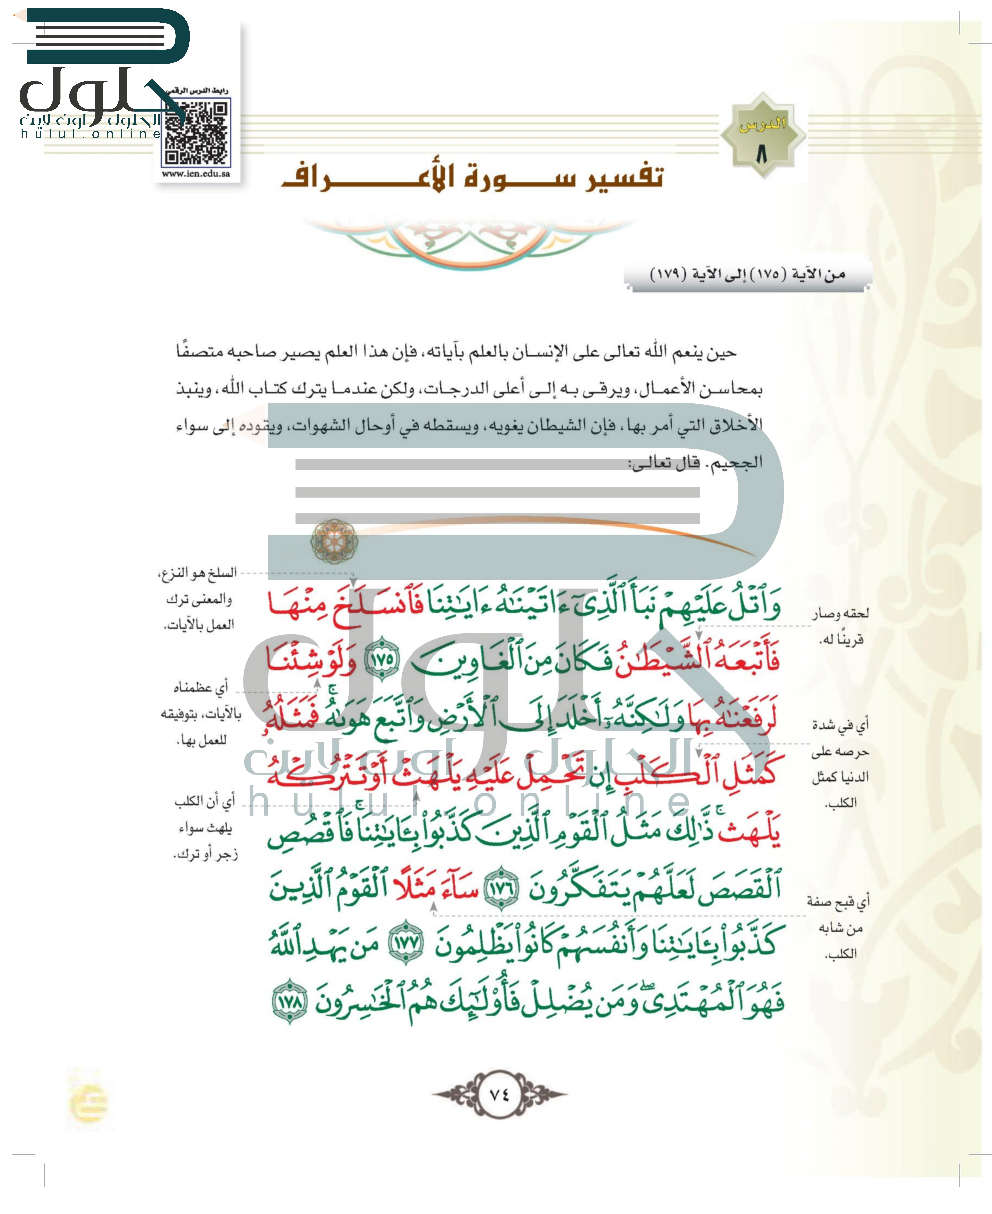 حلول
الحلول اون لاين
hulul.online
رابط الدرس الرقمي
www.ien.edu.sa
الدرس
٨
تفسير ســورة الأعـــــراف
من الآية (١٧٥) إلى الآية (١٧٩)
حين ينعم الله تعالى على الإنسان بالعلم بآياته، فإن هذا العلم يصير صاحبه متصفًا
بمحاسن الأعمال، ويرقى به إلى أعلى الدرجات، ولكن عندما يترك كتاب الله، وينبذ
الأخلاق التي أمر بها، فإن الشيطان يغويه، ويسقطه في أوحال الشهوات، ويقوده إلى سواء
الجحيم. قال تعالى:
وَٱتْلُ عَلَيْهِمْ نَبَأَ ٱلَّذِىٓ ءَاتَيْنَٰهُ ءَايَٰتِنَا فَٱنسَلَخَ مِنْهَا
فَأَتْبَعَهُ ٱلشَّيْطَٰنُ فَكَانَ مِنَ ٱلْغَاوِينَ ١٧٥ وَلَوْ شِئْنَا
لَرَفَعْنَٰهُ بِهَا وَلَٰكِنَّهُۥٓ أَخْلَدَ إِلَى ٱلْأَرْضِ وَٱتَّبَعَ هَوَىٰهُ ۚ فَمَثَلُهُۥ
كَمَثَلِ ٱلْكَلْبِ إِن تَحْمِلْ عَلَيْهِ يَلْهَثْ أَوْ تَتْرُكْهُ
يَلْهَث ۚ ذَّٰلِكَ مَثَلُ ٱلْقَوْمِ ٱلَّذِينَ كَذَّبُوا۟ بِـَٔايَٰتِنَا ۚ فَٱقْصُصِ
ٱلْقَصَصَ لَعَلَّهُمْ يَتَفَكَّرُونَ ١٧٦ سَآءَ مَثَلًا ٱلْقَوْمُ ٱلَّذِينَ
كَذَّبُوا۟ بِـَٔايَٰتِنَا وَأَنفُسَهُمْ كَانُوا۟ يَظْلِمُونَ ١٧٧ مَن يَهْدِ ٱللَّهُ
فَهُوَ ٱلْمُهْتَدِى ۖ وَمَن يُضْلِلْ فَأُو۟لَٰٓئِكَ هُمُ ٱلْخَٰسِرُونَ ١٧٨
لحقه وصار
قرينًا له.
أي في شدة
حرصه على
الدنيا كمثل
الكلب.
أي قبح صفة
من شابه
الكلب.
السلخ هو النزع،
والمعنى ترك
العمل بالآيات.
أي عظمناه
بالآيات، بتوفيقه
للعمل بها.
أي أن الكلب
يلهث سواء
زجر أو ترك.
حلول
الحلول اون لاين
hulul.online
٧٤